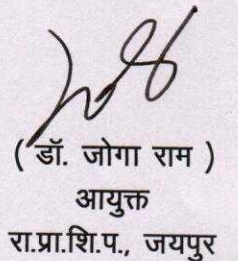 ( डॉ. जोगा राम )
आयुक्त
रा.प्रा.शि.प., जयपुर